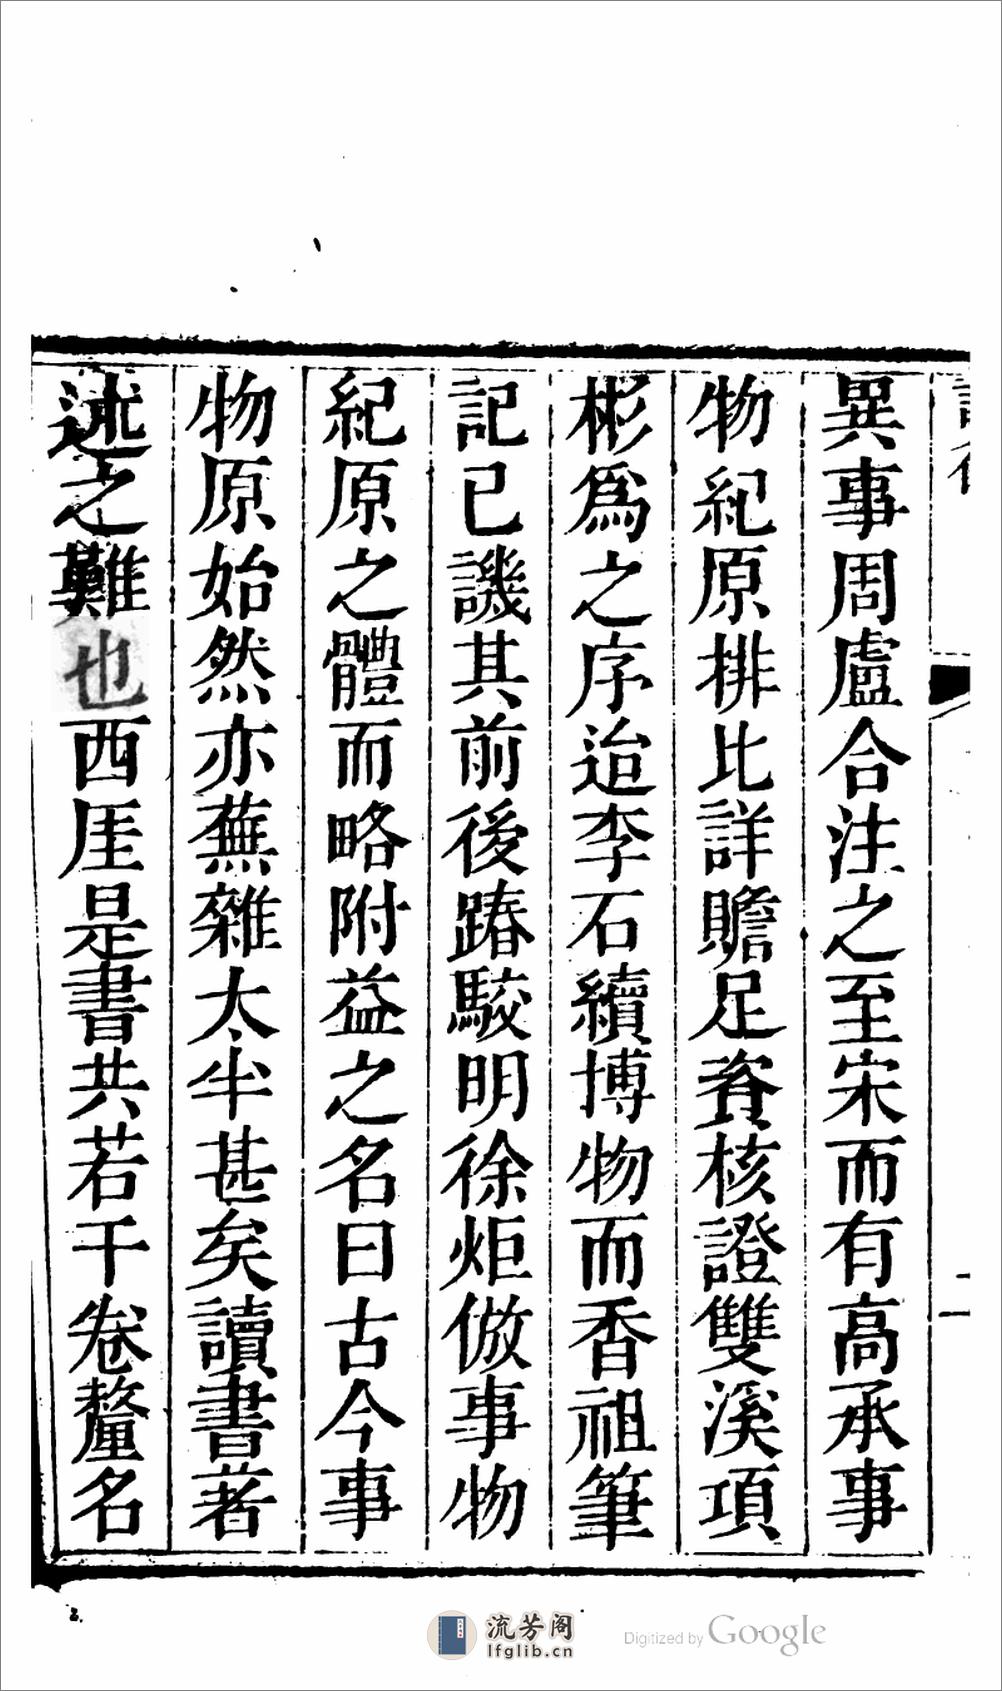 異事周盧合注之至宋而有高承事
物紀原排比詳贍足資核證雙溪項
彬爲之序迨李石續博物而香祖筆
記已譏其前後踳駮明徐炬倣事物
紀原之體而略附益之名曰古今事
物原始然亦蕪雜太半甚矣讀書著
述之難也西厓是書共若干卷釐名
流芳阁
lfglib.cn
Digitized by Google